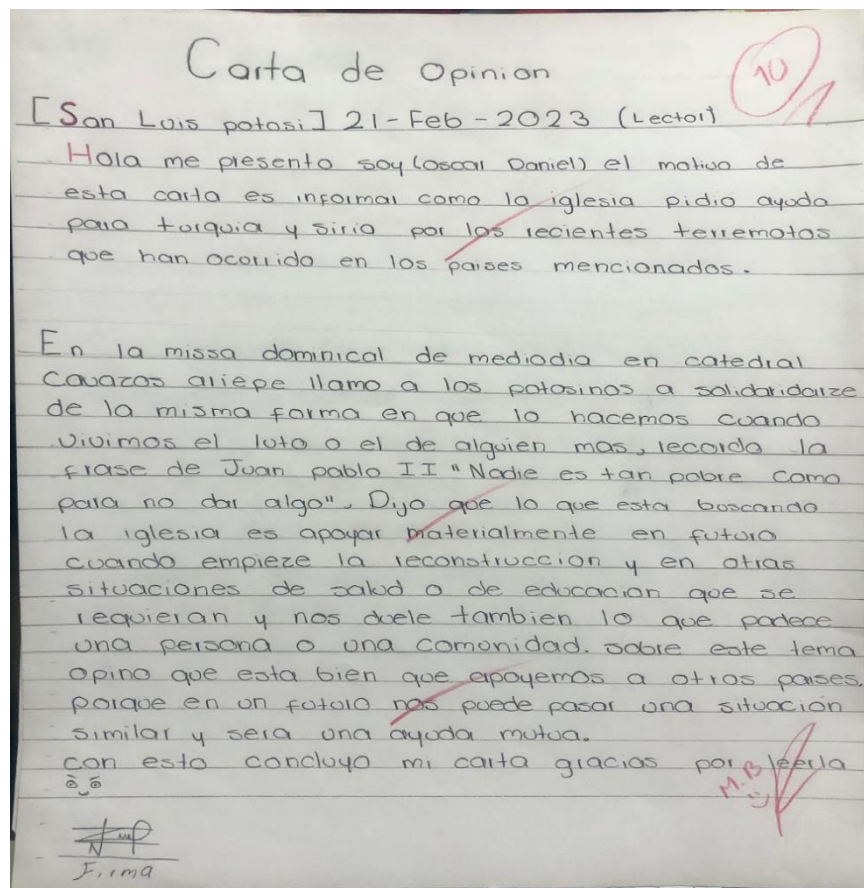 Carta de Opinion
10
[San Luis potosi] 21-Feb-2023 (Lector)
Hola me presento soy (oscar Daniel) el motivo de
esta carta es informar como la iglesia pidio ayuda
para turquia y siria por los recientes terremotos
que han ocurrido en los paises mencionados.
En la missa dominical de mediodia en catedral
Cavazos ariepe llamo a los potosinos a solidaridarze
de la misma forma en que lo hacemos cuando
vivimos el luto o el de alguien mas, recordo la
frase de Juan pablo II "Nadie es tan pobre como
para no dar algo". Dijo que lo que esta buscando
la iglesia es apoyar materialmente en futuro
cuando empieze la reconstruccion y en otras
situaciones de salud o de educacion que se
requieran y nos duele tambien lo que padece
una persona o una comunidad. sobre este tema
opino que esta bien que apoyemos a otros paises.
porque en un futuro nos puede pasar una situación
similar y sera una ayuda mutua.
con esto concluyo mi carta gracias por leerla
M.B
Firma